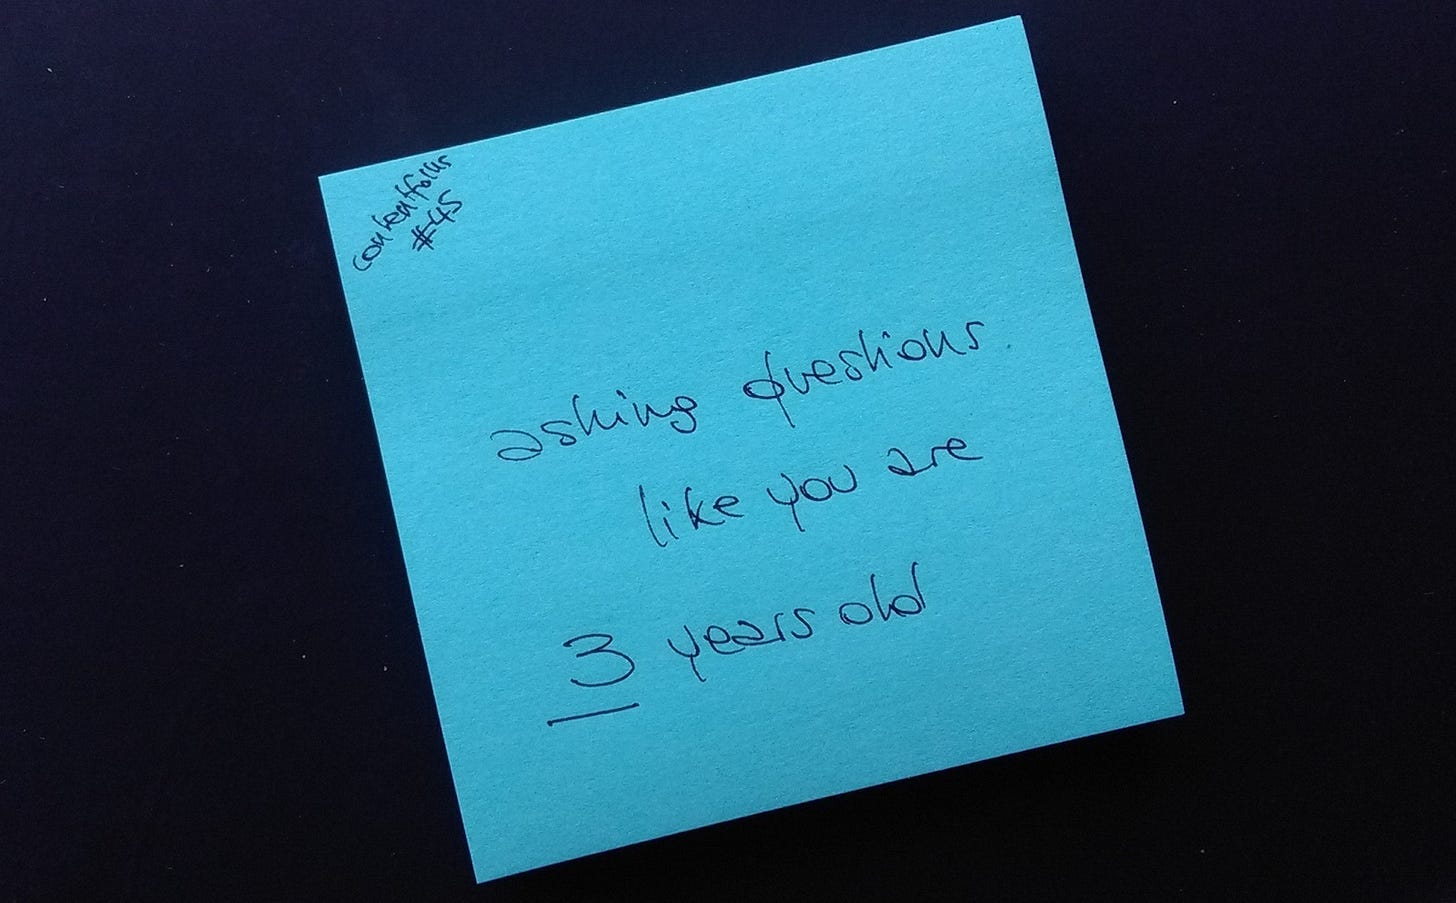 contentfolks
#45
asking questions
like you are
3 years old